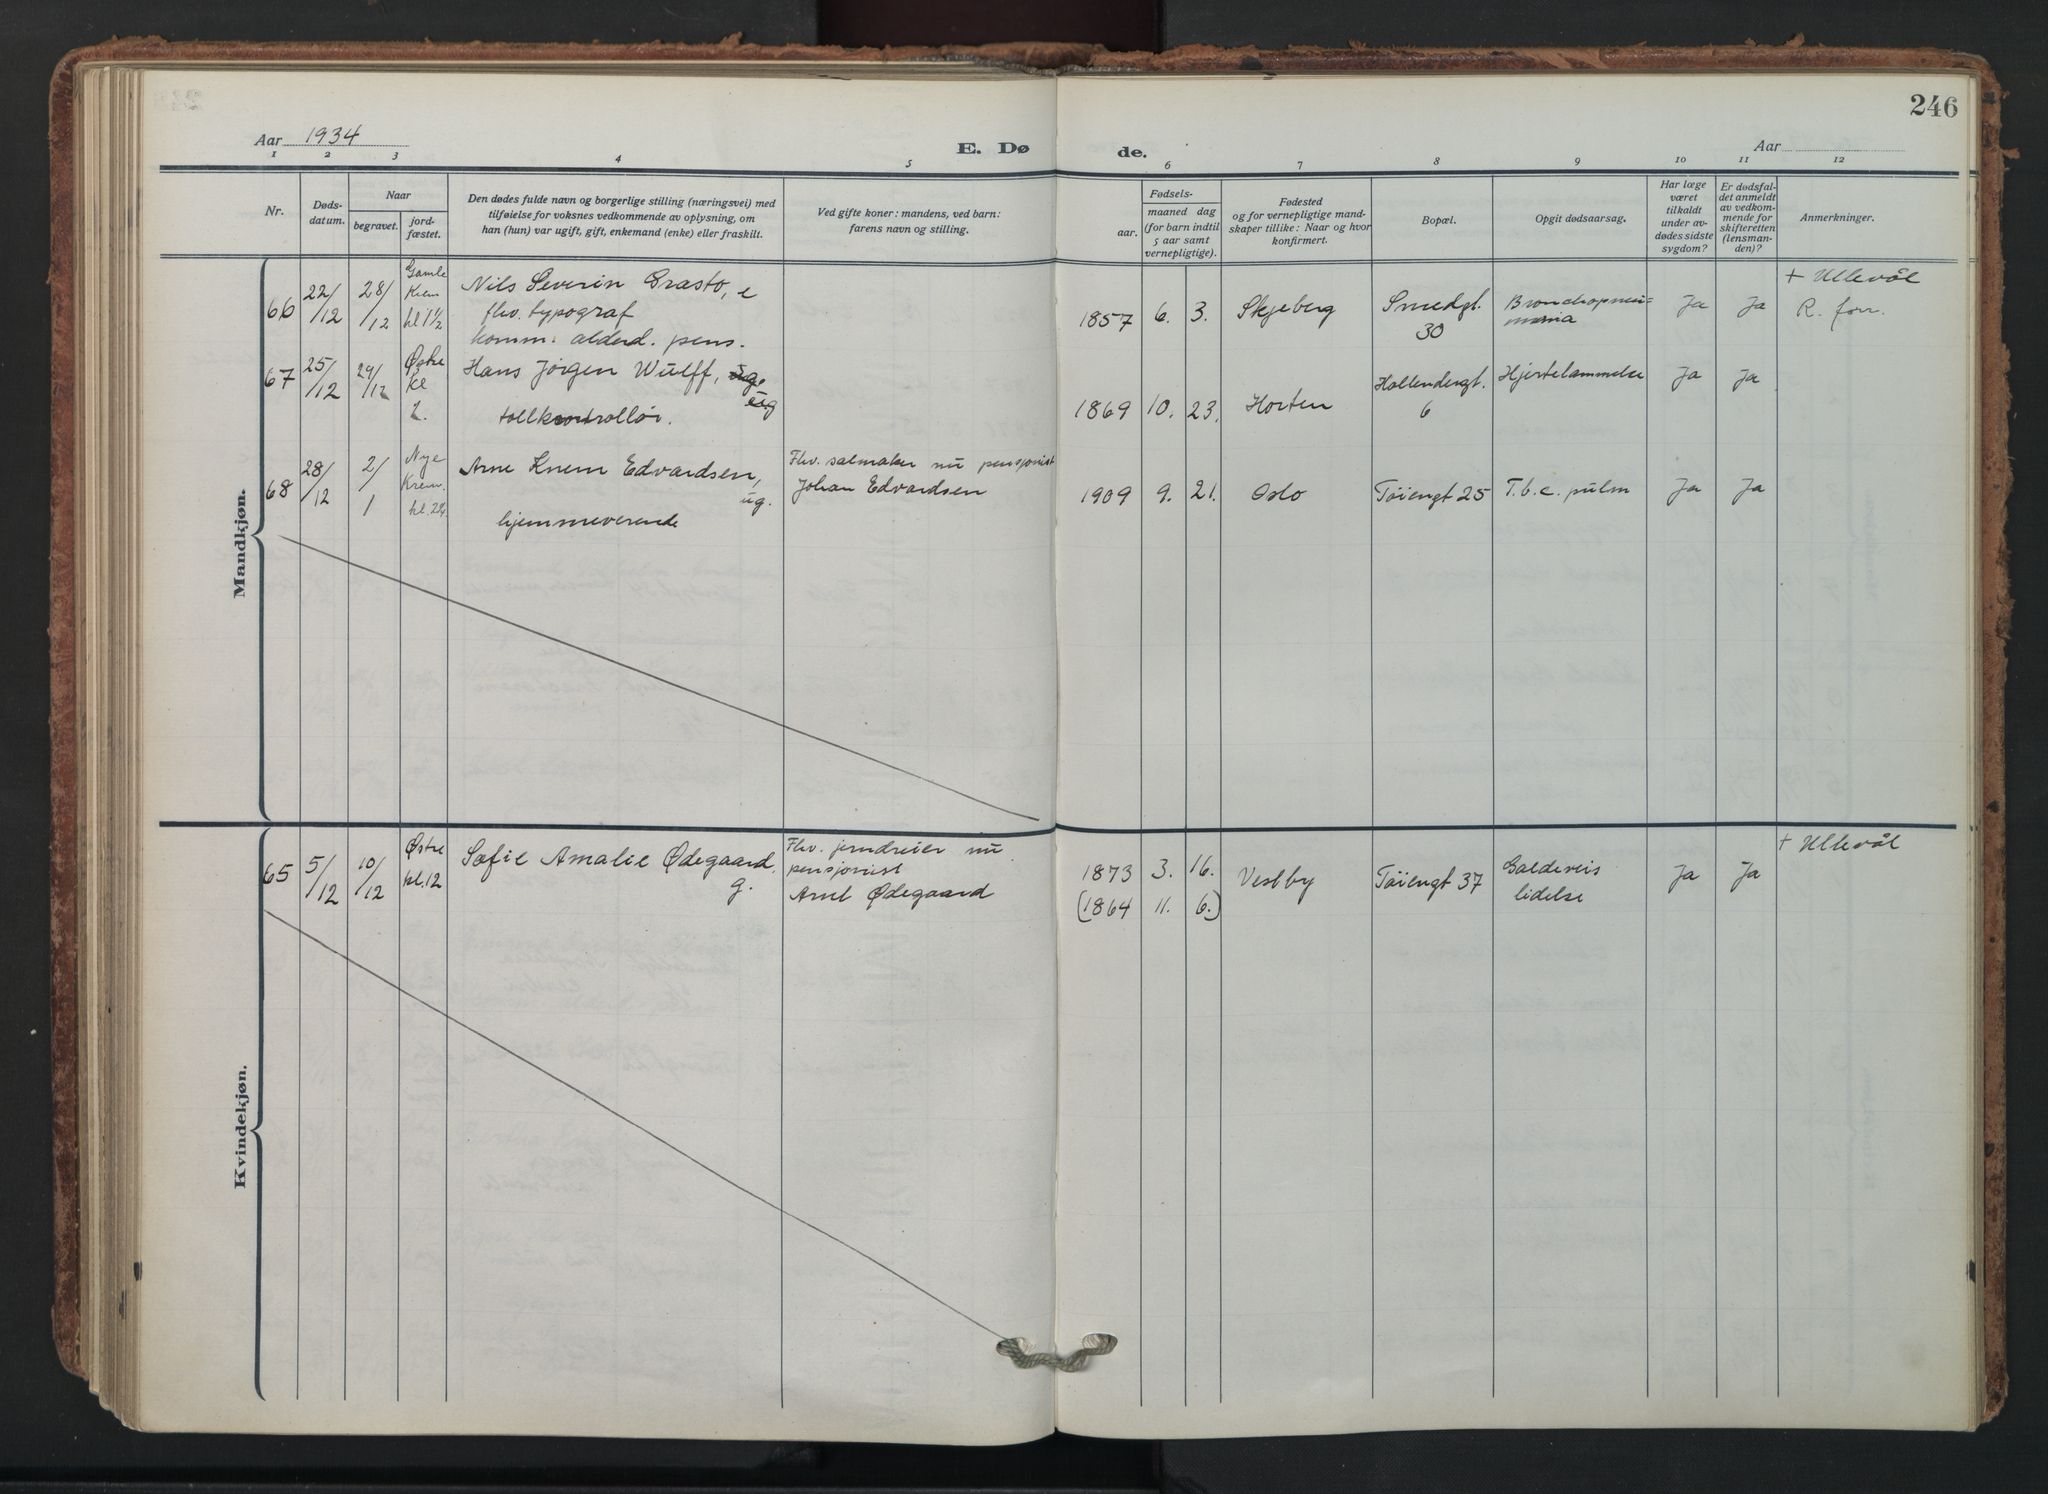 246
Aar 1934
E. Dø
de.
Aar
1 2 3 4 5 6 7 8 9 10 11 12
Nr.
Døds-
datum.
Naar
begravet.
jord-
fæstet.
Den dødes fulde navn og borgerlige stilling (næringsvei) med
tilføielse for voksnes vedkommende av oplysning, om
han (hun) var ugift, gift, enkemand (enke) eller fraskilt.
Ved gifte koner: mandens, ved barn:
farens navn og stilling.
Fødsels-
aar.
maaned dag
(for barn indtil
5 aar samt
vernepligtige).
Fødested
og for vernepligtige mand-
skaper tillike: Naar og hvor
konfirmert.
Bopæl.
Opgit dødsaarsag.
Har læge
været
tilkaldt
under av-
dødes sidste
sygdom?
Er dødsfal-
det anmeldt
av vedkom-
mende for
skifteretten
(lensman-
den)?
Anmerkninger.
Mandkjøn.
66 22/12 28/12 Gamle
Krem
kl 1½
Nils Severin Grasto, e
fhv. typograf
komm. alderd. pens.
1857 6. 3. Skjeberg
Smedgt.
30
Bronchopneu=
monia
Ja Ja
+ Ullevål
R. forr.
67 25/12 29/12 Østre
kl
2.
Hans Jörgen Wulff, ug.
ug
tollkontrollör.
1869 10. 23. Horten
Hollendergt.
6
Hjertelammelse
Ja Ja
68 28/12 2/1 Nye
Krem.
Arne Knem Edvardsen,
ug.
hjemmeverende
Fhv. salmaker nu pensjonist
Johan Edvardsen
1909 9. 21. Oslo Töiengt 25 T.b.c. pulm Ja Ja
Kvindekjøn.
65 5/12 10/12 Østre
kl. 12
Sofie Amalie Ødegaard,
g.
Fhv. jerndreier nu
pensjonist
Arnt Ødegaard
1873 3. 16.
(1864 11. 6.)
Vestby Töiengt 37
Galdeveis
lidelse
Ja Ja
+ Ullevål